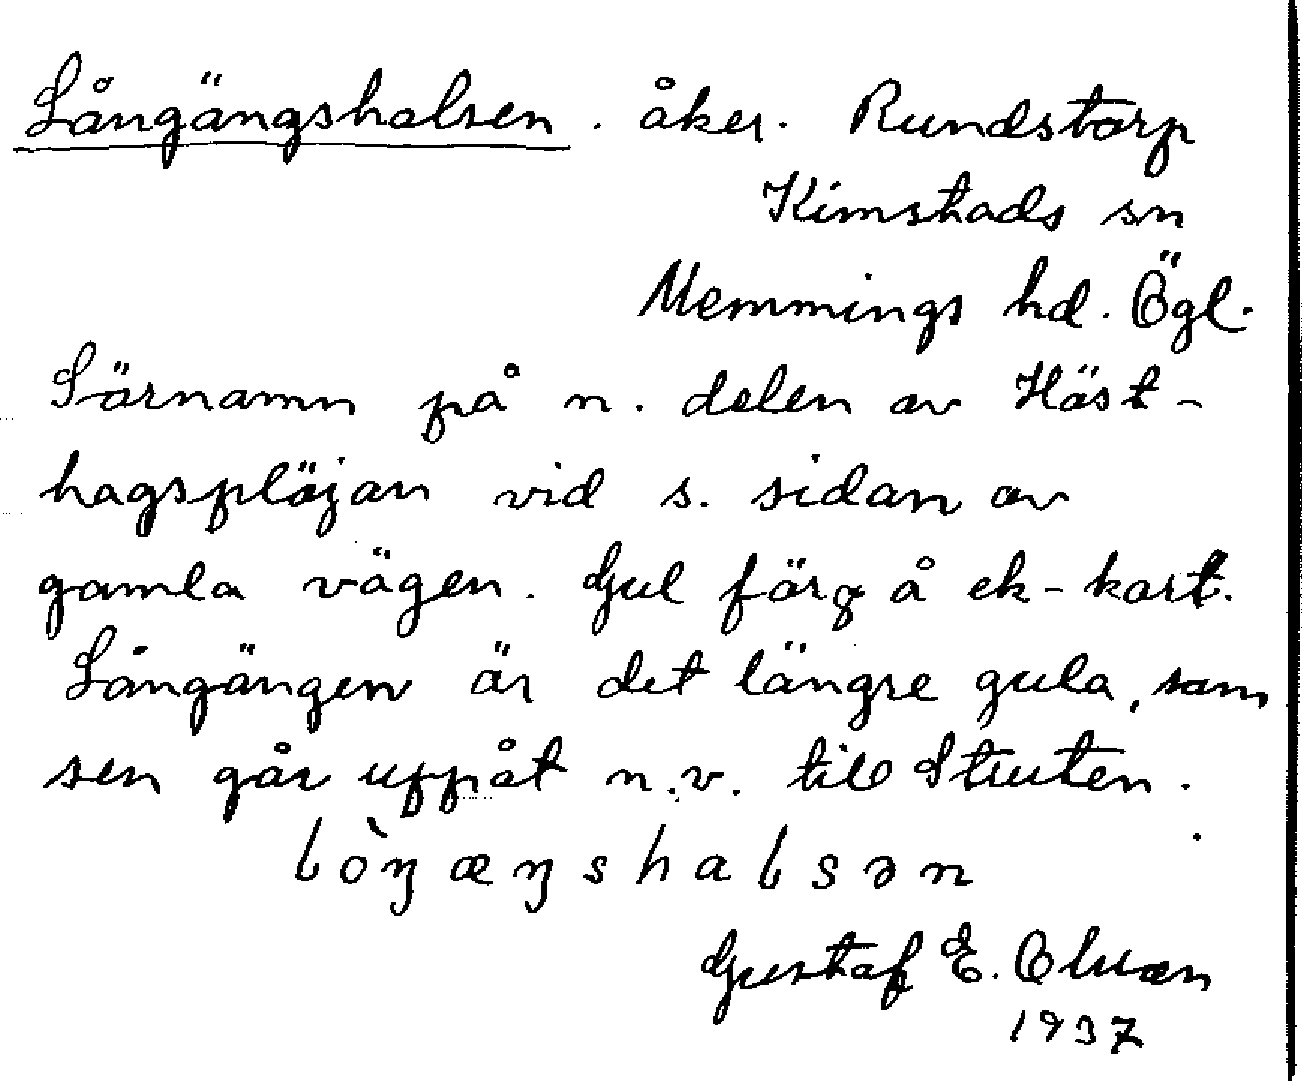 Långängshalsen. åker. Rundstorp
Kimstads sn
Memmings hd. Ögl.
Särnamn på n. delen av Häst-
hagsplöjan vid s. sidan av
gamla vägen. Gul färg å ek-kart.
Långängen är det längre gula, som
sen går uppåt n.v. till Struten.
lòŋæŋshalsən
Gustaf E. Olsson
1937